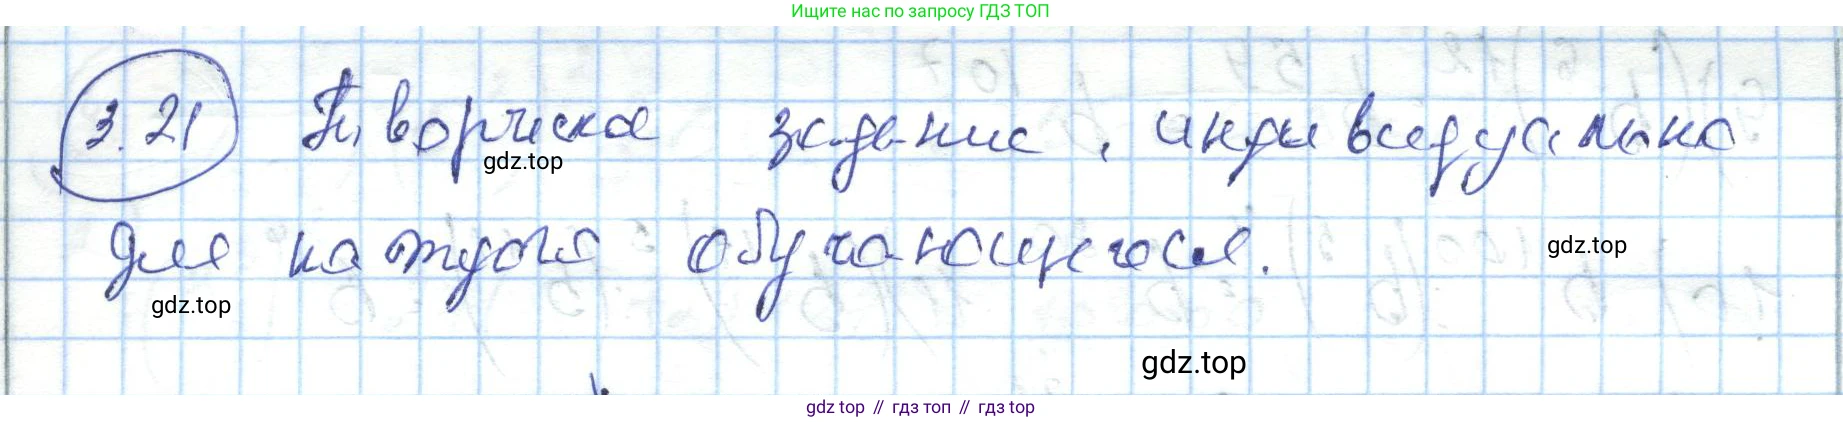 Ищите нас по запросу ГДЗ ТОП
3.21 Творческое задание, индивидуально
gdz.top
для каждого обучающегося.
gdz.top
gdz.top
gdz.top
gdz top // гдз топ // gdz top